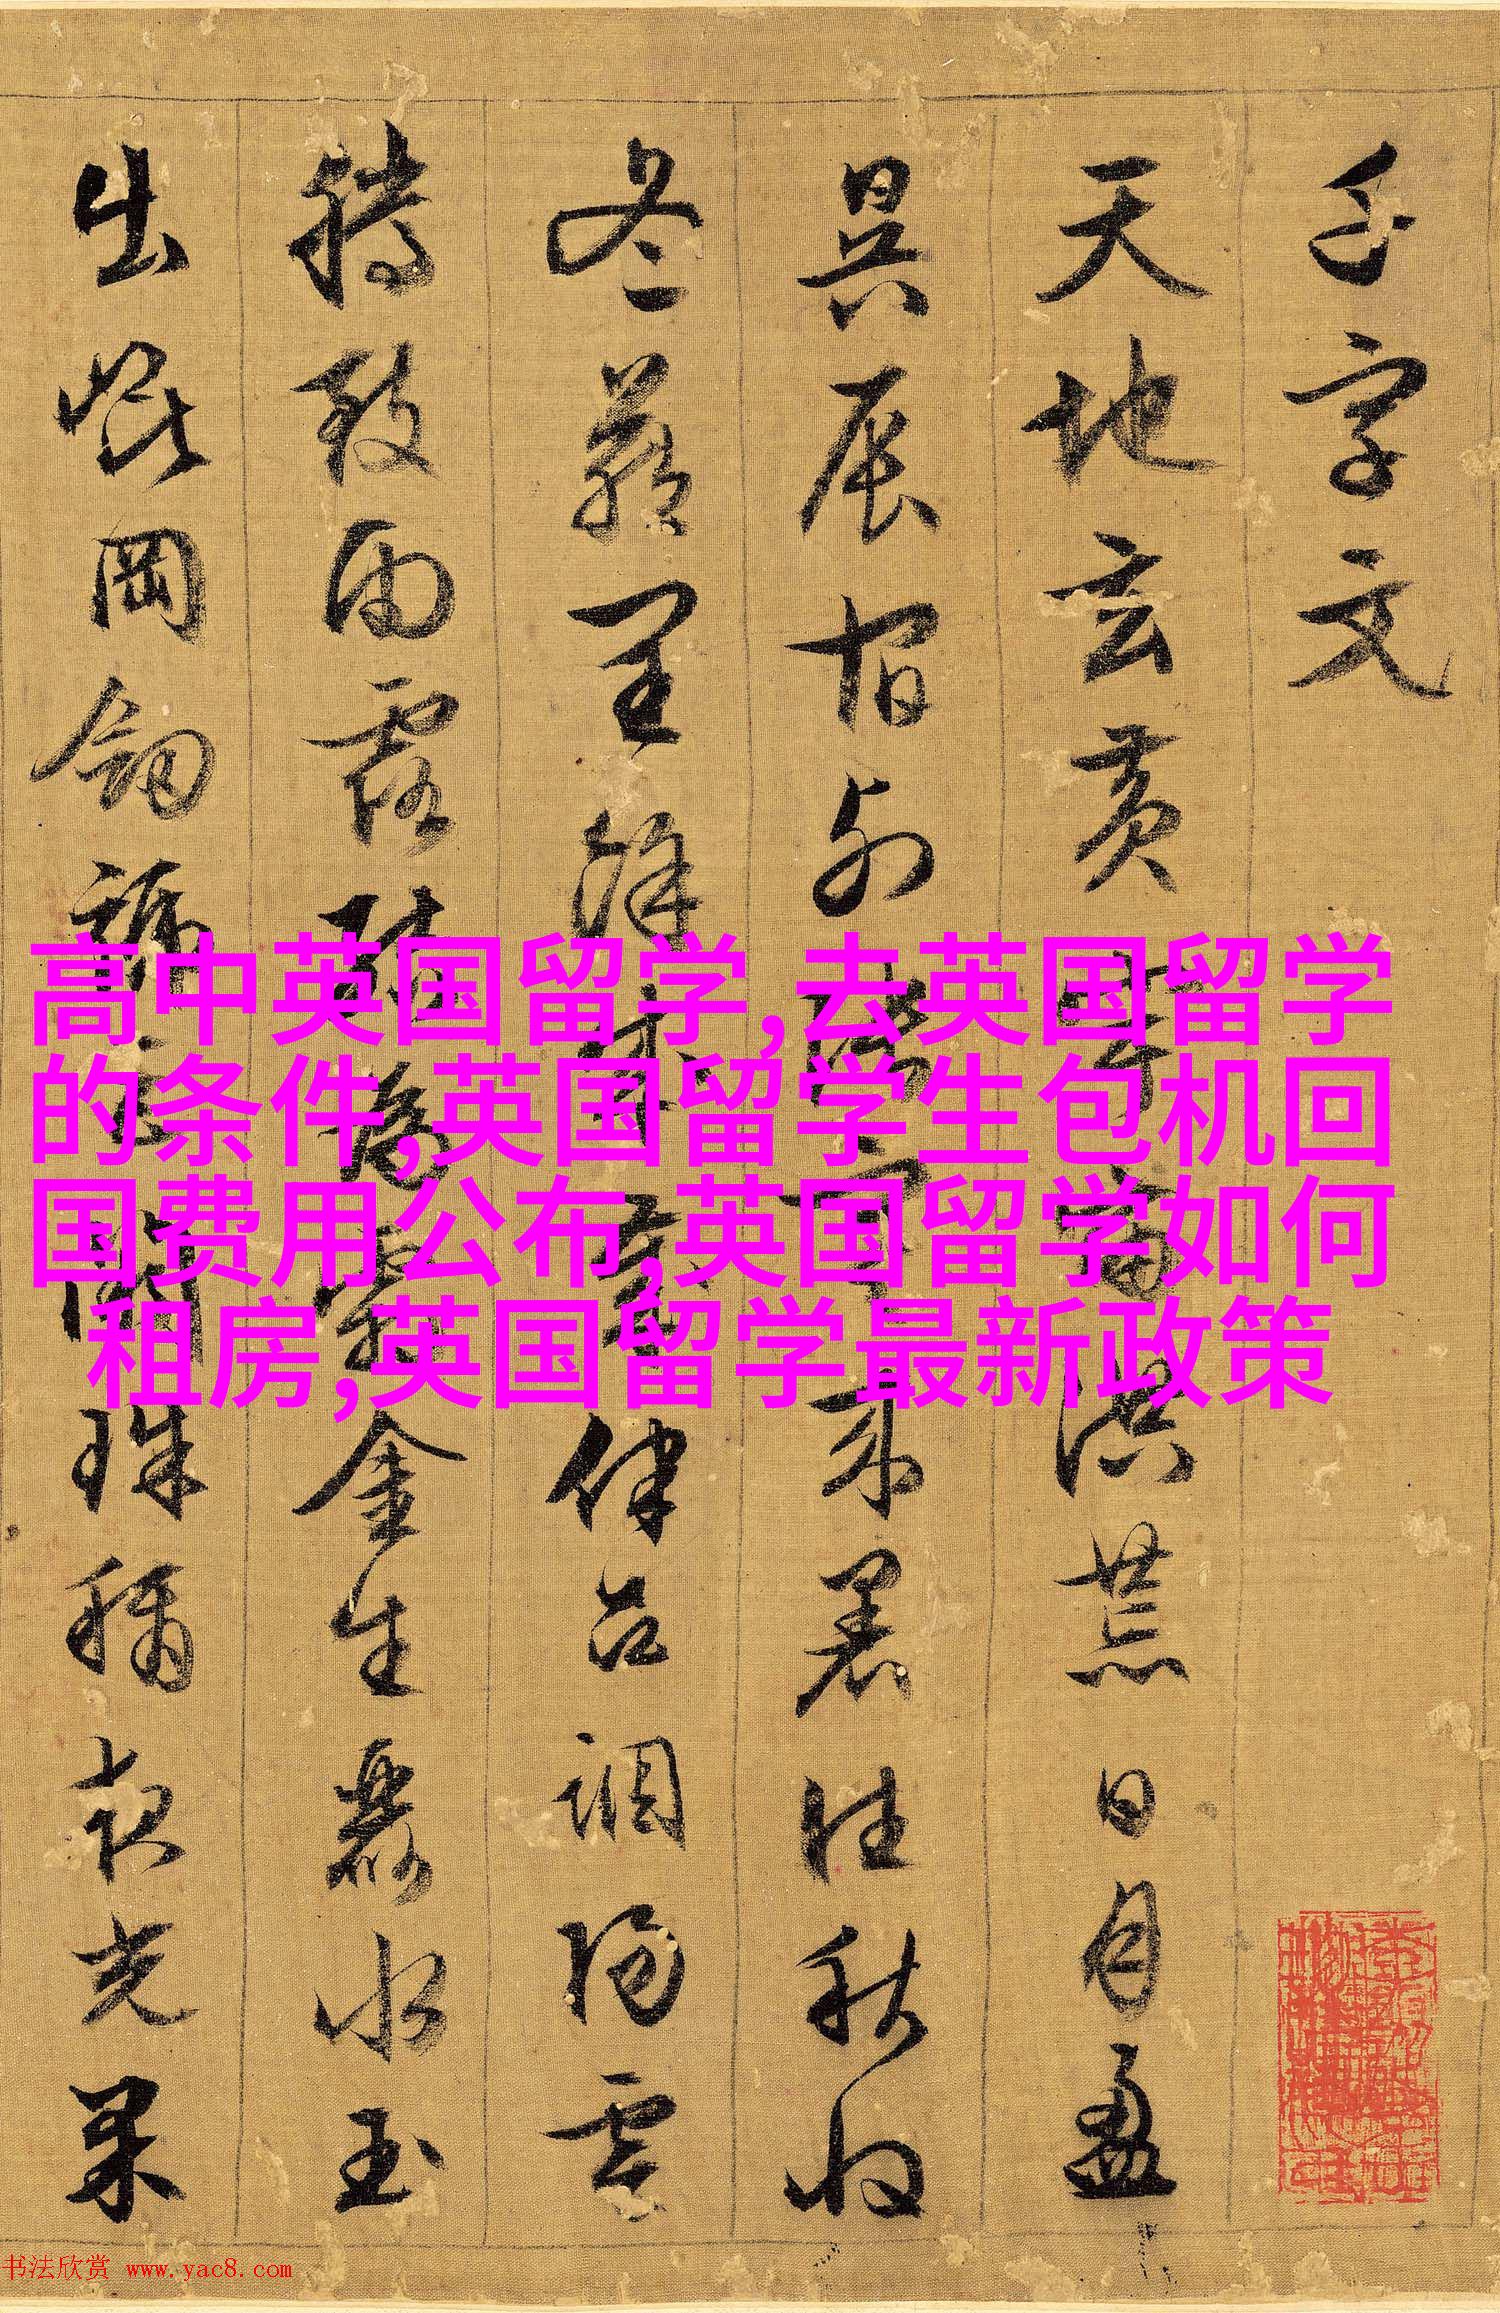 千字文
天地玄黄宇宙洪荒日月盈
昃辰宿列張寒来暑往秋收
冬藏閏餘成歲律吕調陽雲
騰致雨露結為霜金生麗水玉
出崑岡劍號巨闕珠稱夜光果
高中英国留学,去英国留学
的条件,英国留学生包机回
国费用公布,英国留学如何
租房,英国留学最新政策
书法欣赏 www.yac8.com